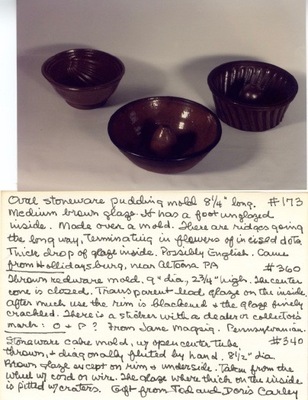 Oval stoneware pudding mold 8 1/4" long. #173
Medium brown glaze. It has a foot unglazed
inside. Made over a mold. There are ridges going
the long way, Terminating in flowers of incised dots
Thick drop of glaze inside. Possibly English. Came
from Hollidaysburg, near Altoona PA
#360
Thrown redware mold, 9" dia, 2 3/4" high. The center
cone is closed. Transparent lead glaze on the inside
after much use the rim is blackened & the glaze finely
crackled. There is a sticker with a dealer or collector's
mark: O + P ? From Jane Pennsylvania.
#340
Stoneware cake mold, w/ open center tube,
thrown, & diagonally fluted by hand. 8 1/2" dia
Brown glaze except on rim & underside. Taken from the
wheel w/ cord or wire. The glaze where thick on the inside
is pitted w/ craters. Gift from Tad and Doris Carley